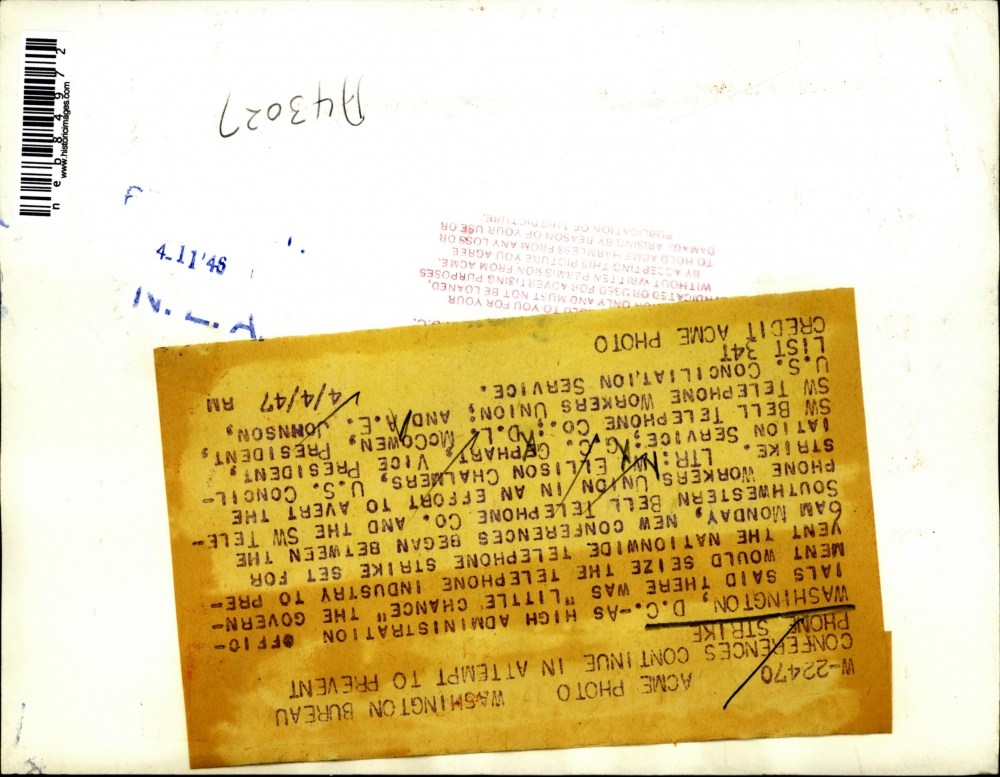 W-22470 ACME PHOTO WASHINGTON BUREAU
CONFERENCES CONTINUE IN ATTEMPT TO PREVENT
PHONE STRIKE
WASHINGTON, D.C.--AS HIGH ADMINISTRATION OFFIC-
IALS SAID THERE WAS "LITTLE CHANCE" THE GOVERN-
MENT WOULD SEIZE THE TELEPHONE INDUSTRY TO PRE-
VENT THE NATIONWIDE TELEPHONE STRIKE SET FOR
6AM MONDAY, NEW CONFERENCES BEGAN BETWEEN THE
SOUTHWESTERN BELL TELEPHONE CO. AND THE SW TELE-
PHONE WORKERS UNION IN AN EFFORT TO AVERT THE
STRIKE. LTR: W. ELLISON CHALMERS, U.S. CONCIL-
IATION SERVICE; G. C. GEPHART, VICE PRESIDENT,
SW BELL TELEPHONE CO.; D.L. MCCOWEN, PRESIDENT,
SW TELEPHONE WORKERS UNION; AND A.E. JOHNSON,
U.S. CONCILIATION SERVICE.
LIST 34T 4/4/47 RM
CREDIT ACME PHOTO
YOU FOR YOUR
ONLY AND MUST NOT BE LOANED,
SYNDICATED OR USED FOR ADVERTISING PURPOSES
WITHOUT WRITTEN PERMISSION FROM ACME.
BY ACCEPTING THIS PICTURE YOU AGREE
TO HOLD ACME HARMLESS FROM ANY LOSS OR
DAMAGE ARISING BY REASON OF YOUR USE OR
PUBLICATION OF THIS PICTURE.
A43027
4-11'46
neb84972
www.historicimages.com